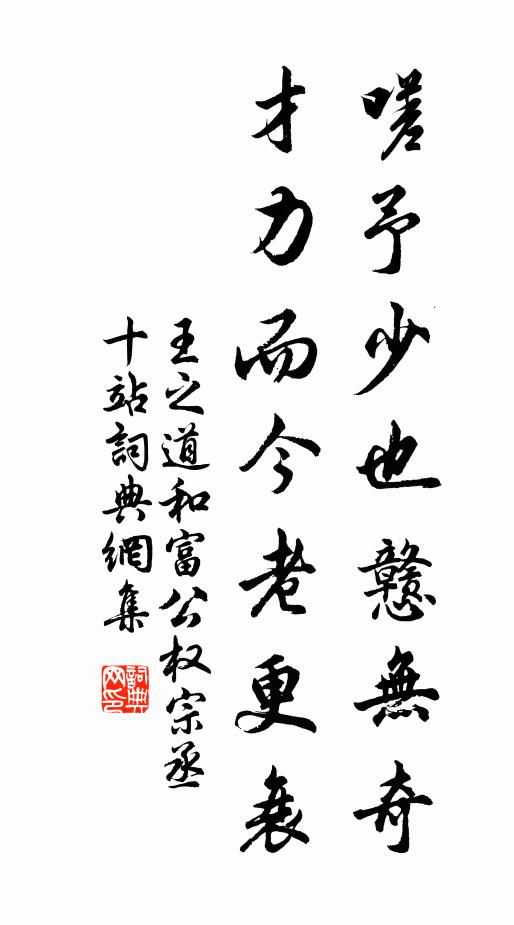 嗟予少也戆無奇
才力而今老更衰
王之道和富公权宗丞
十站詞典網集
詞典
网印